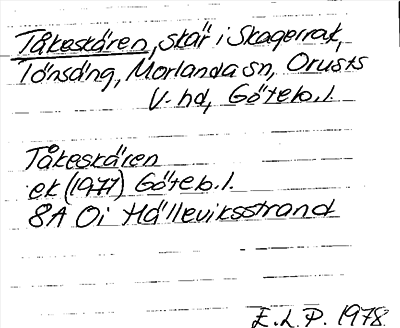 Tåkeskären, skär i Skagerrak,
Tånsång, Morlanda sn, Orusts
V. hd, Göteb. l.
Tåkeskären
ek (1977) Göteb. l.
8A 0i Hälleviksstrand
E.L.P. 1978